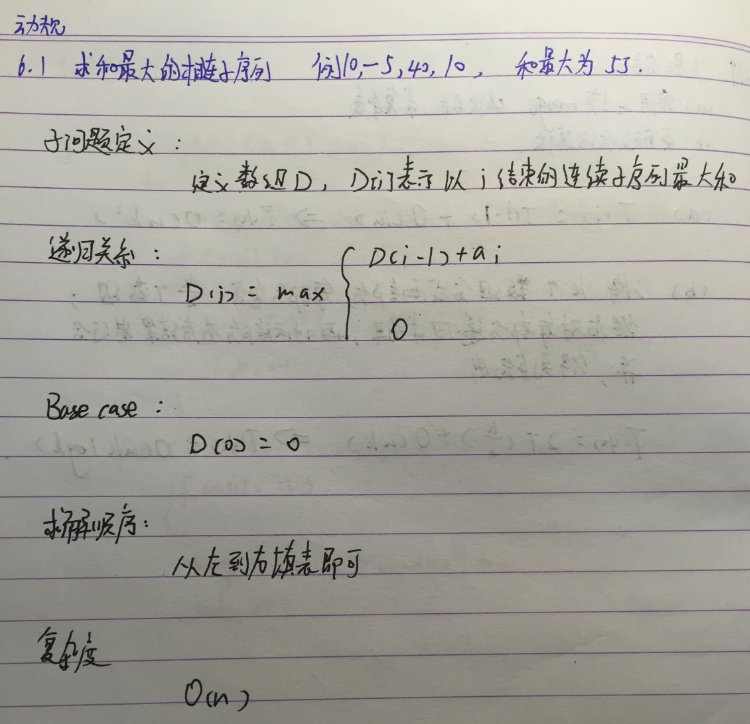 动规
6.1 求和最大的相连子序列 例10,-5,40,10, 和最大为55.
子问题定义:
定义数组D, D(j)表示以j结束的连续子序列最大和
递归关系:
D(j) = max { D(j-1)+aj
0
Base case:
D(0) = 0
求解顺序:
从左到右填表即可
复杂度
O(n)